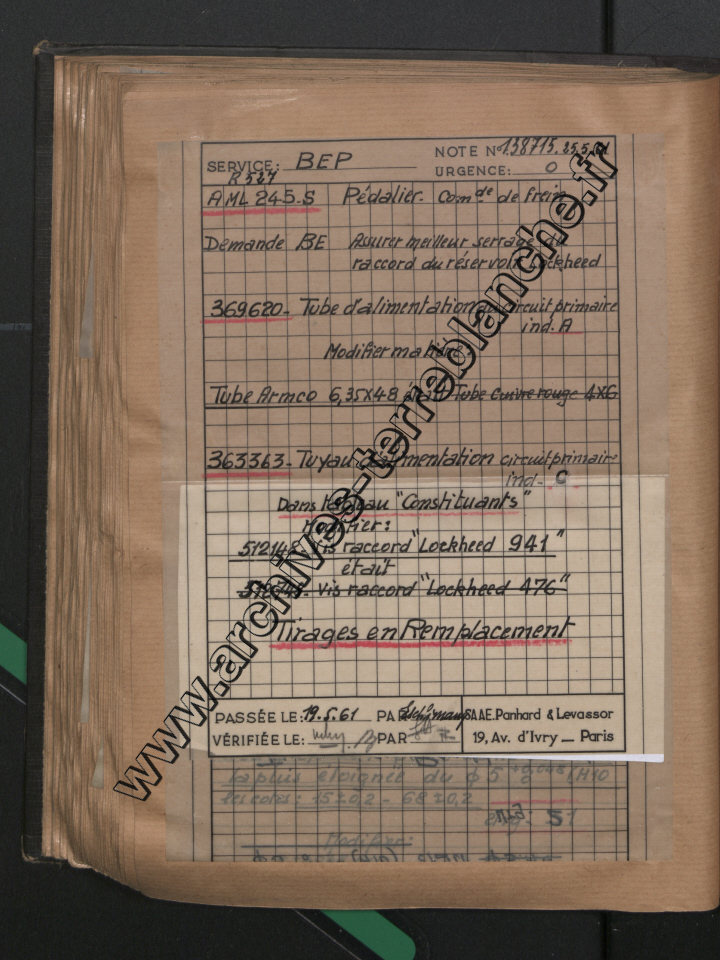 SERVICE: BEP
NOTE N° 138715. 25.5.61
URGENCE: 0
R 527
AML 245.S Pédalier. Comde de frein
Demande BE Assurer meilleur serrage du
raccord du réservoir Lockheed
369620- Tube d'alimentation circuit primaire
ind. A
Modifier matière:
Tube Armco 6,35X48 était Tube cuivre rouge 4X6
363363- Tuyau d'alimentation circuit primaire
ind- C
Dans tableau "Constituants"
Modifier:
Vis raccord "Lockheed 941"
était
Vis raccord "Lockheed 476"
Tirages en Remplacement
PASSÉE LE: 19.5.61 PAR
SAAE. Panhard & Levassor
VÉRIFIÉE LE: PAR
19, Av. d'Ivry _ Paris
la plus éloignée du φ 5 H10
les cotes: 15±0,2 - 68±0,2
Modifier:
www.archives-terreblanche.fr